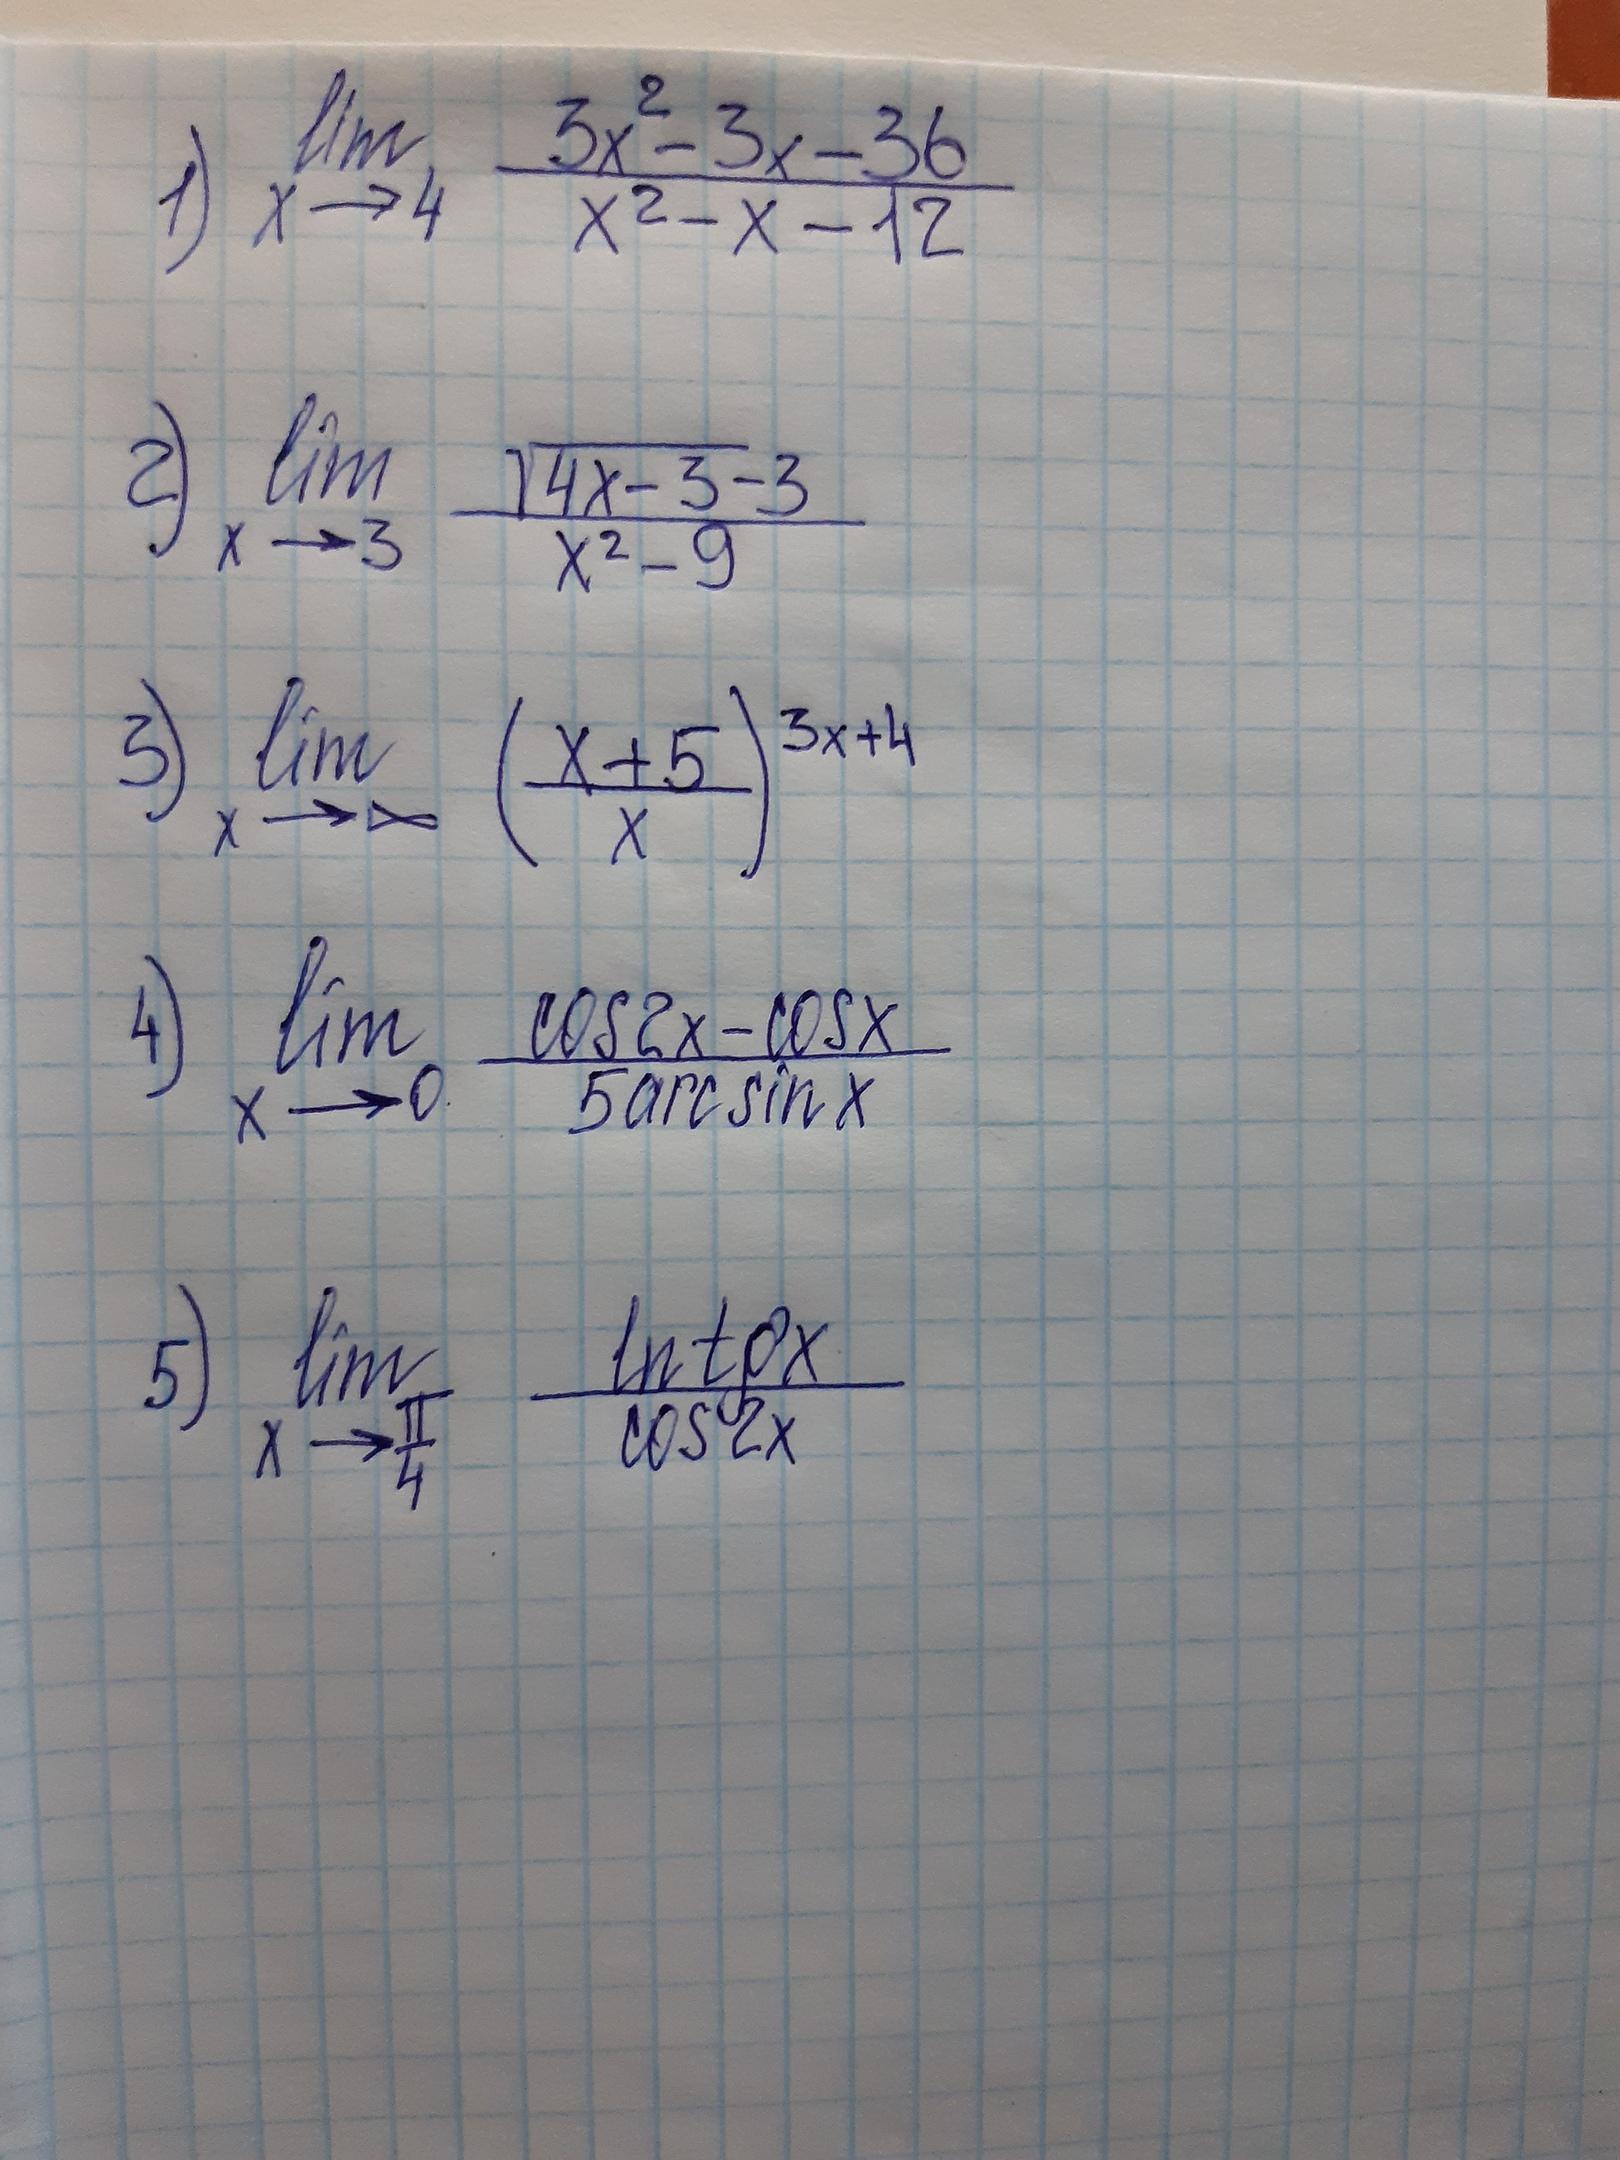 1) lim x→4 (3x² - 3x - 36)/(x² - x - 12)
2) lim x→3 (√(4x - 3) - 3)/(x² - 9)
3) lim x→∞ ((x+5)/x)^(3x+4)
4) lim x→0 (cos2x - cosx)/(5arcsinx)
5) lim x→π/4 (ln tgx)/(cos2x)